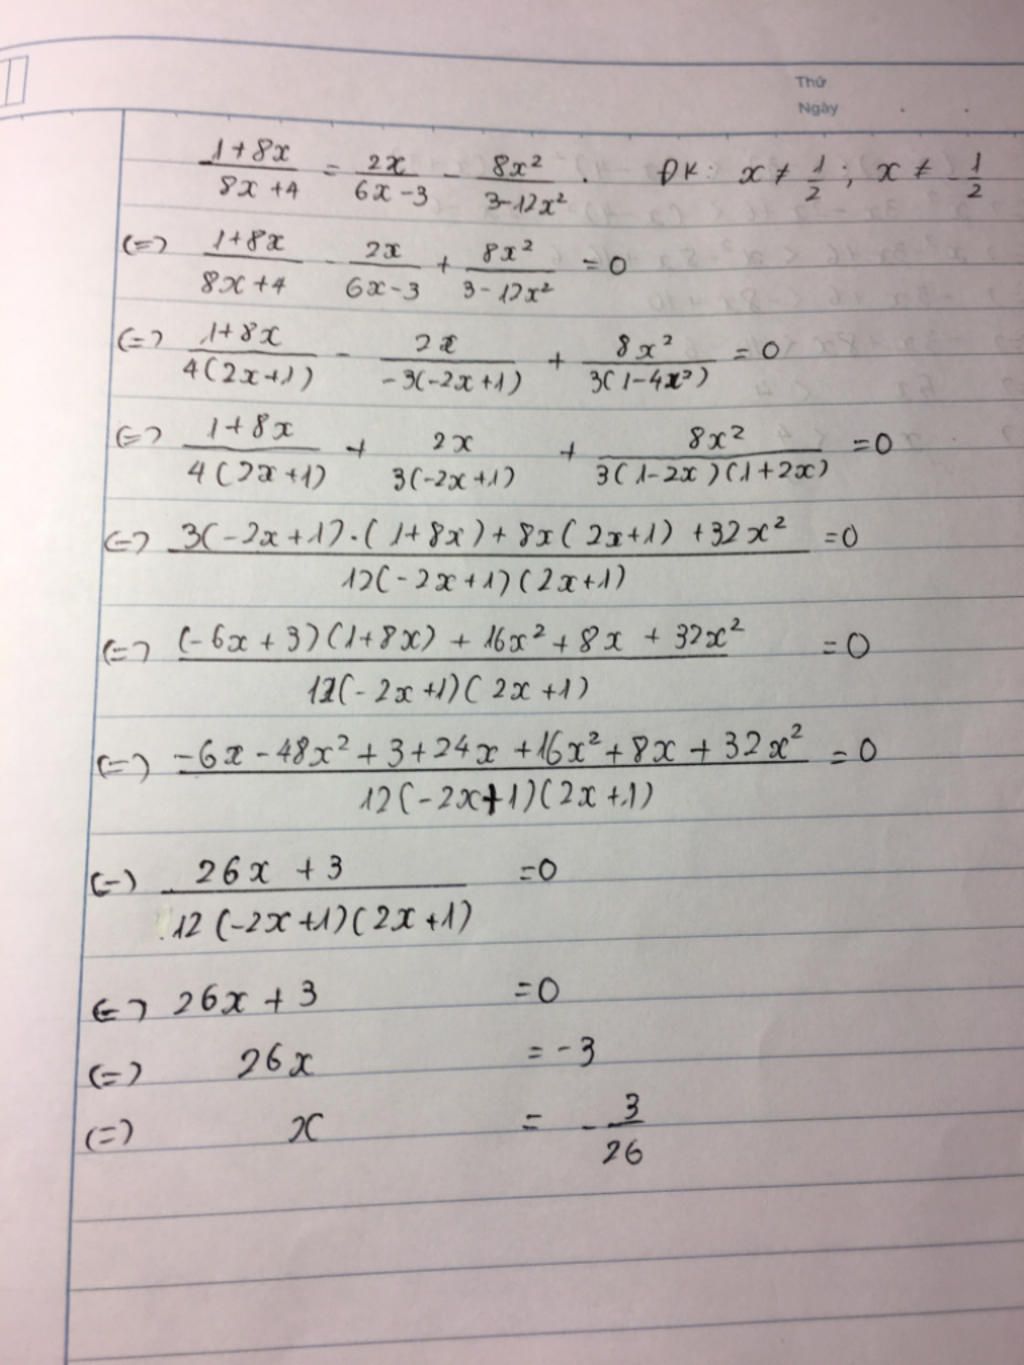 Thứ
Ngày
\frac{1+8x}{8x+4} = \frac{2x}{6x-3} - \frac{8x^2}{3-12x^2}. ĐK: x ≠ \frac{1}{2}; x ≠ -\frac{1}{2}
(=) \frac{1+8x}{8x+4} - \frac{2x}{6x-3} + \frac{8x^2}{3-12x^2} = 0
(=) \frac{1+8x}{4(2x+1)} - \frac{2x}{-3(-2x+1)} + \frac{8x^2}{3(1-4x^2)} = 0
(=) \frac{1+8x}{4(2x+1)} + \frac{2x}{3(-2x+1)} + \frac{8x^2}{3(1-2x)(1+2x)} = 0
(=) \frac{3(-2x+1).(1+8x)+8x(2x+1)+32x^2}{12(-2x+1)(2x+1)} = 0
(=) \frac{(-6x+3)(1+8x)+16x^2+8x+32x^2}{12(-2x+1)(2x+1)} = 0
(=) \frac{-6x-48x^2+3+24x+16x^2+8x+32x^2}{12(-2x+1)(2x+1)} = 0
(=) \frac{26x+3}{12(-2x+1)(2x+1)} = 0
(=) 26x+3 = 0
(=) 26x = -3
(=) x = -\frac{3}{26}